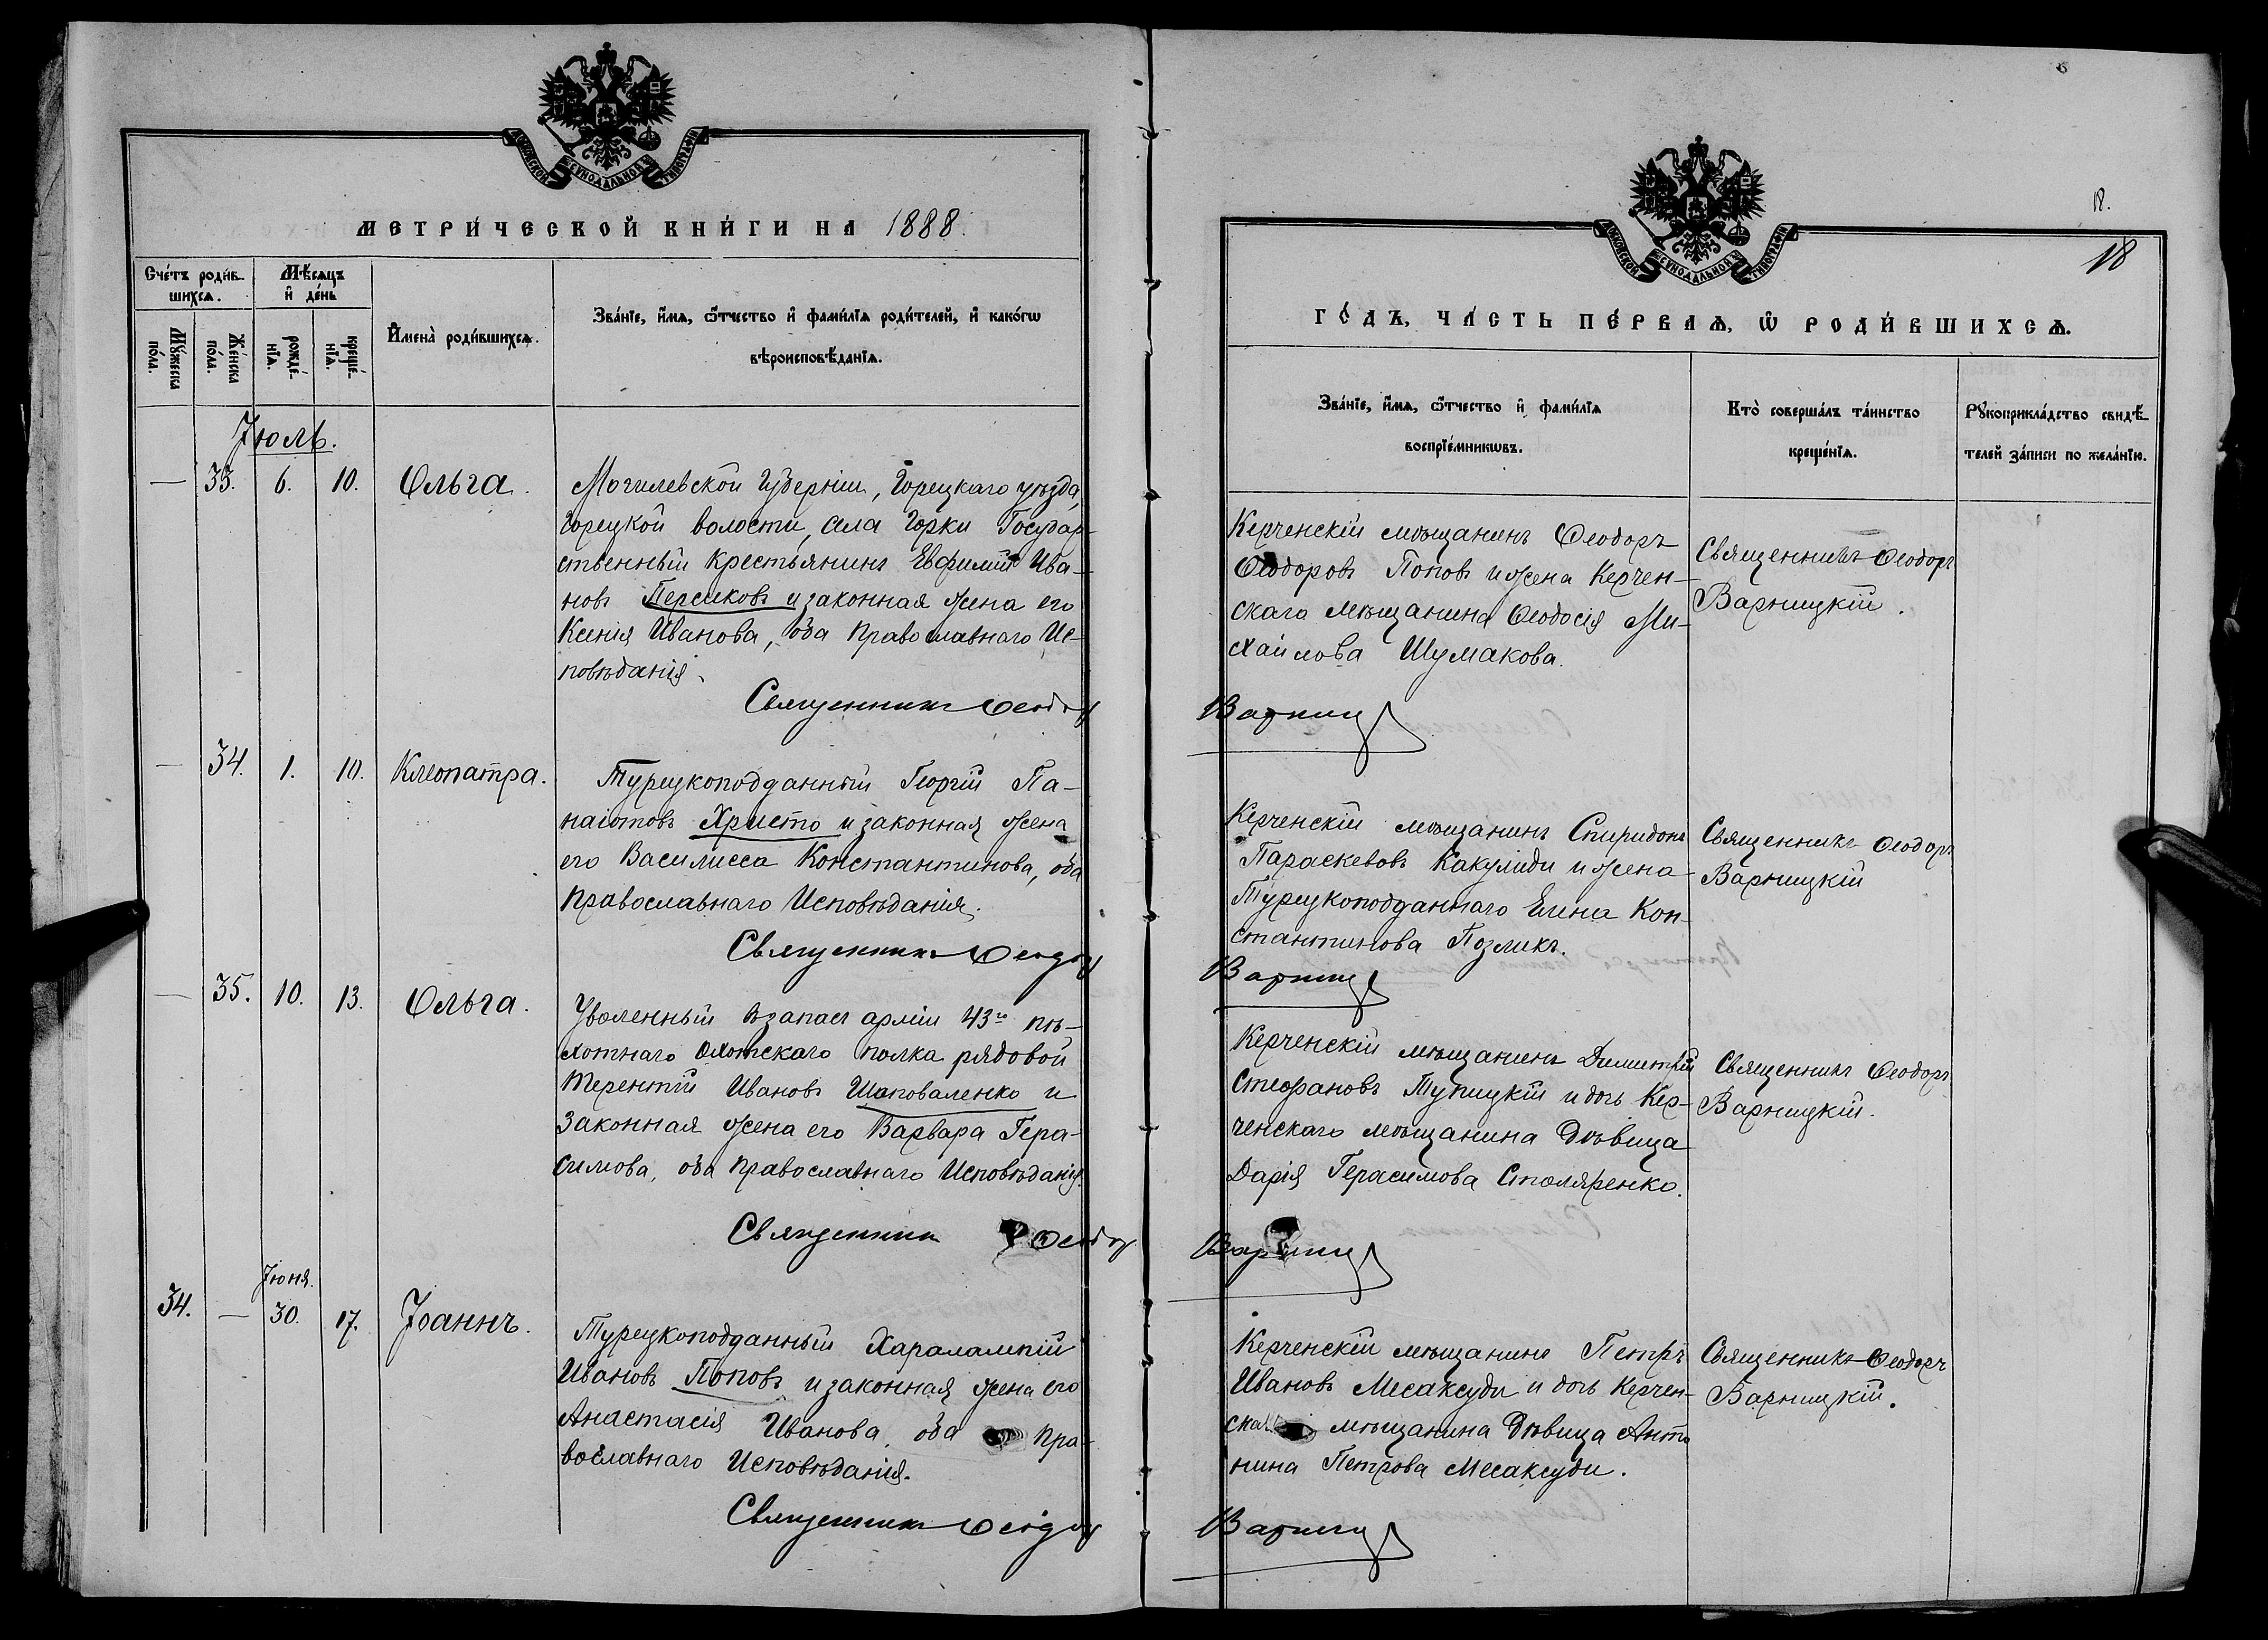 МОСКОВСКОЙ СѴНОДАЛЬНОЙ ТИПОГРАФІИ
МЕТРИ́ЧЕСКОЙ КНИ́ГИ НА 1888.
Сче́тъ роди́в-
шихсѧ.
Мѣ́сѧцъ
и҆ де́нь
Мꙋ́жеска
по́ла.
Же́нска
по́ла.
рожде́-
нїѧ.
креще́-
нїѧ.
И҆мена̀ роди́вшихсѧ.
Зва́нїе, и҆́мѧ, ѻ҆́тчество и҆ фами́лїѧ роди́телей, и҆ како́гѡ
вѣроисповѣ́данїѧ.
Іюль.
— 33. 6. 10. Ольга.
Могилевской Губерніи, Горецкаго уѣзда,
Горецкой волости, села Горки Государ-
ственный крестьянинъ Евфимій Ива-
новъ Персиковъ и законная жена его
Ксенія Иванова, оба Православнаго Ис-
повѣданія.
Священникъ Ѳеодоръ
— 34. 1. 10. Клеопатра.
Турецкоподданный Георгій Па-
наіотовъ Христо и законная жена
его Василисса Константинова, оба
Православнаго Исповѣданія.
Священникъ Ѳеодоръ
— 35. 10. 13. Ольга.
Уволенный въ запасъ арміи 43го пѣ-
хотнаго Охотскаго полка рядовой
Терентій Ивановъ Шаповаленко и
законная жена его Варвара Гера-
симова, оба Православнаго Исповѣданія.
Священникъ Ѳеодоръ
Іюня.
34. — 30. 17. Іоаннъ.
Турецкоподданный Харалампій
Ивановъ Поповъ и законная жена его
Анастасія Иванова, оба Пра-
вославнаго Исповѣданія.
Священникъ Ѳеодоръ
18.
18
МОСКОВСКОЙ СѴНОДАЛЬНОЙ ТИПОГРАФІИ
ГО́ДЪ, ЧА́СТЬ ПЕ́РВАѦ, Ѡ҆ РОДИ́ВШИХСѦ.
Зва́нїе, и҆́мѧ, ѻ҆́тчество и҆ фами́лїѧ
воспрїе́мникѡвъ.
Кто̀ соверша́лъ та́инство
креще́нїѧ.
Рꙋкоприкла́дство свидѣ́-
телей за́писи по жела́нїю.
Керченскій мѣщанинъ Ѳеодоръ
Ѳеодоровъ Поповъ и жена Керчен-
скаго мѣщанина Ѳеодосія Ми-
хайлова Шумакова.
Священникъ Ѳеодоръ
Варницкій.
Варниц
Керченскій мѣщанинъ Спиридонъ
Параскевовъ Какулиди и жена
Турецкоподданнаго Елена Кон-
стантинова Позликъ.
Священникъ Ѳеодоръ
Варницкій
Варниц
Керченскій мѣщанинъ Димитрій
Стефановъ Тупицкій и дочь Кер-
ченскаго мѣщанина Дѣвица
Дарія Герасимова Столяренко.
Священникъ Ѳеодоръ
Варницкій.
Варниц
Керченскій мѣщанинъ Петръ
Ивановъ Месаксуди и дочь Керчен-
скаго мѣщанина Дѣвица Анто
нина Петрова Месаксуди.
Священникъ Ѳеодоръ
Варницкій.
Варниц